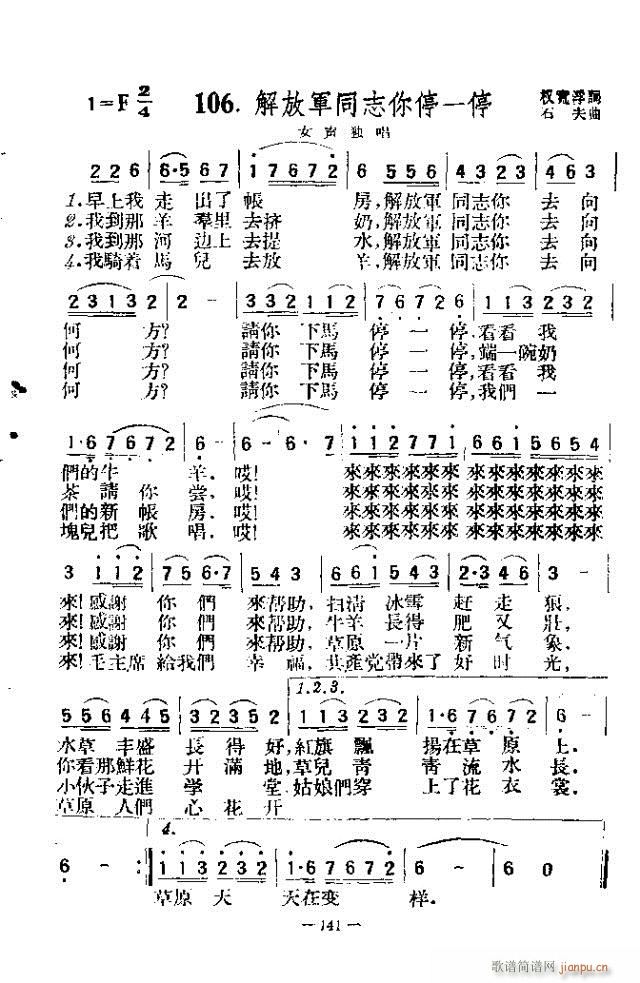 1=F 2/4 106. 解放軍同志你停一停 权寬浮詞
石夫曲
女声独唱
2 2 6 6·5 6 7 1 7 6 7 2 6 5 5 6 4 3 2 3 4 6 3
1.早上我 走 出了帳 房,解放軍 同志你 去向
2.我到那 羊 羣里去挤 奶,解放軍 同志你 去向
3.我到那 河 边上去提 水,解放軍 同志你 去向
4.我騎着 馬 兒 去放 羊,解放軍 同志你 去向
2 3 1 3 2 2 - 3 3 2 2 1 2 7 6 7 2 6 1 1 3 2 3 2
何 方? 請你 下馬 停 一 停,看看 我
何 方? 請你 下馬 停 一 停,端一碗奶
何 方? 請你 下馬 停 一 停,看看 我
何 方? 請你 下馬 停 一 停,我們 一
1·6 7 6 7 2 6 - 6 - 6·7 1 1 2 7 7 1 6 6 7 5 6 5 4
們的牛 羊. 哎! 來來來來來來來來來來來來
茶 請你 尝, 哎! 來來來來來來來來來來來來
們的新 帳 房, 哎! 來來來來來來來來來來來來
塊兒把 歌 唱, 哎! 來來來來來來來來來來來來
3 1 1 2 7 2 6 5·7 5 4 3 6 6 1 5 4 3 2·3 4 6 3 -
來!感謝 你 們 來帮助,扫清 冰雪 赶走 狼,
來!感謝 你 們 來帮助,牛羊 長得 肥又 壯,
來!感謝 你 們 來帮助,草原 一片 新气 象,
來!毛主席 給我們 幸 福,共產党帶來了 好时 光,
1.2.3.
5 5 6 2 4 4 5 1 1 3 2 3 2 1·6 7 6 7 2 6 -
水草 丰盛 長 得 好,紅旗 飄 揚在草 原 上.
你看那鮮花 开 滿 地,草兒 青 青流水 長.
小伙子走進 学 堂,姑娘們穿 上了花 衣 裳.
草原 人們 心 花 开
4.
6 - 1 1 3 2 3 2 1·6 7 6 7 2 6 - 6 0
草原 天 天在变 样.
— 141 —
歌谱简谱网
jianpu.cn